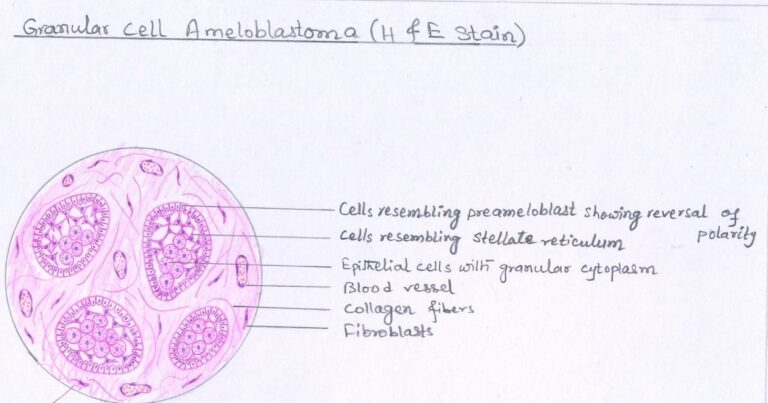 Granular cell Ameloblastoma (H & E Stain)
Cells resembling preameloblast showing reversal of polarity
Cells resembling stellate reticulum
Epithelial cells with granular cytoplasm
Blood vessel
Collagen fibers
Fibroblasts